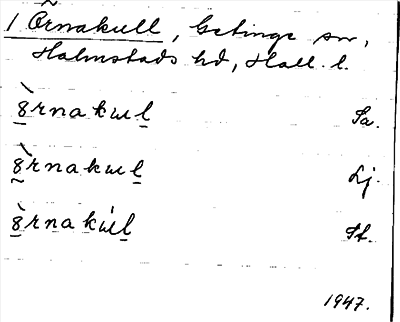 1 Örnakull, Getinge sn,
Halmstads hd, Hall. l.
8̀rnakɯl Sa.
8̀rnakɯl Lj.
8̀rnakɯ́l St.
1947.